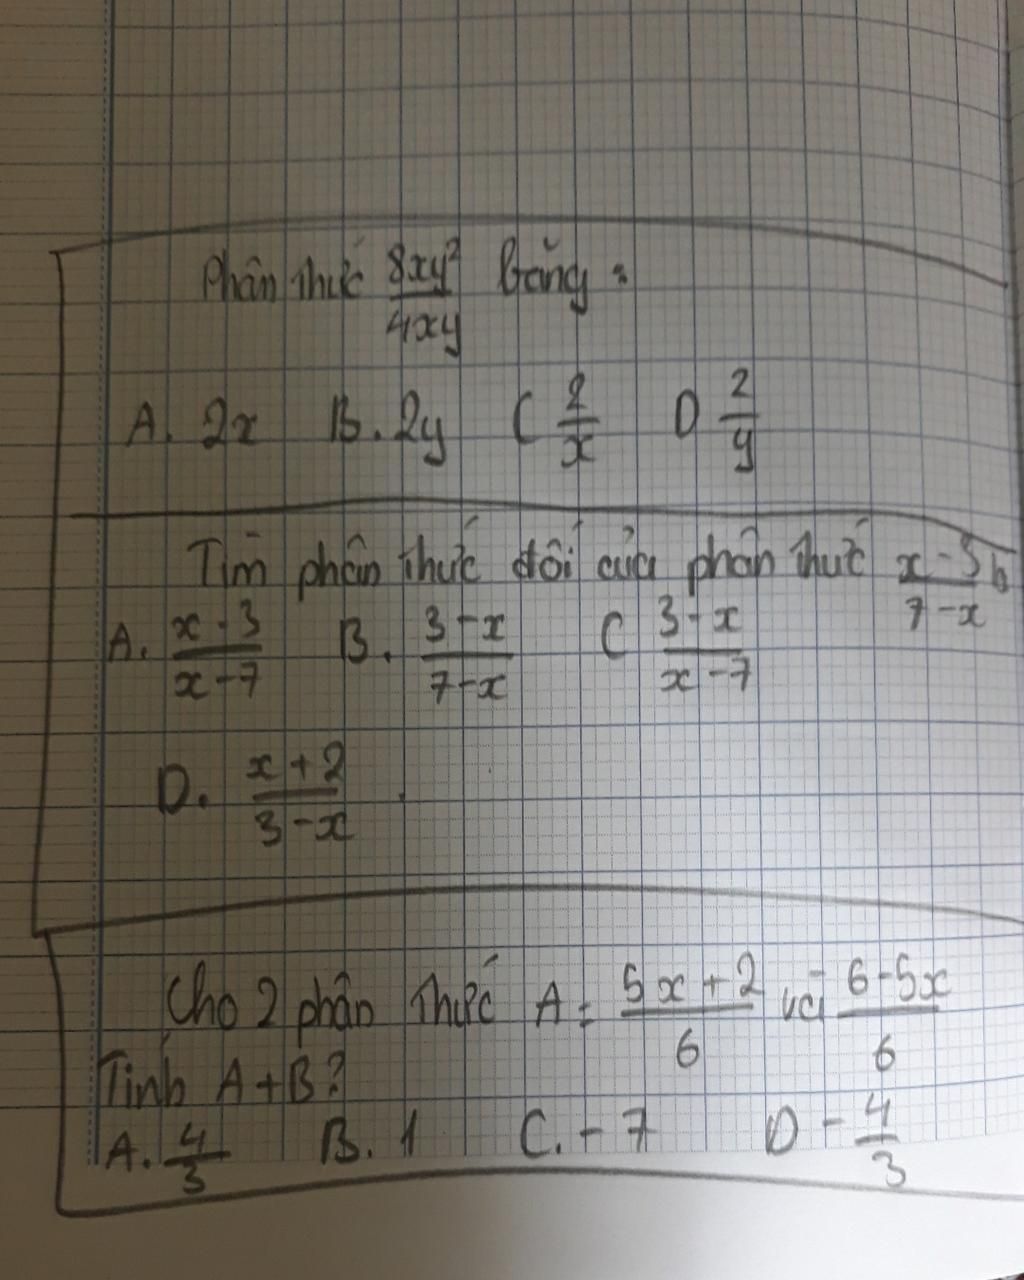 Phân thức 8xy²/4xy bằng:
A. 2x B. 2y C 2/x D 2/y
Tìm phân thức đối của phân thức x-3/7-x
A. x-3/x-7 B. 3-x/7-x C 3-x/x-7
D. x+2/3-x.
Cho 2 phân thức A = 5x+2/6 và 6-5x/6
Tính A+B?
A. 4/3 B. 1 C. -7 D -4/3